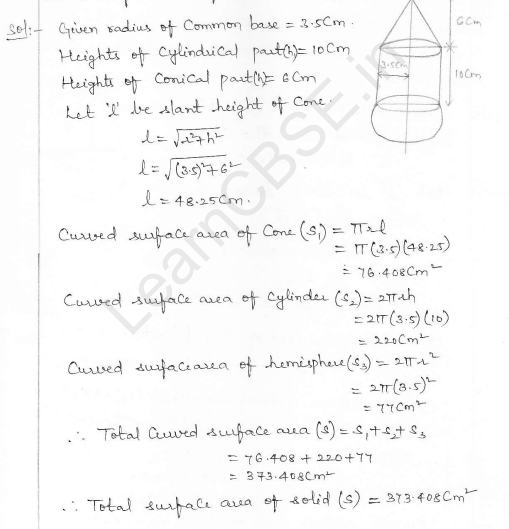 Sol:- Given radius of Common base = 3.5Cm.
6Cm
Heights of Cylindrical part(h)= 10Cm
3.5Cm
Heights of Conical part(h)= 6Cm
10Cm
Let 'l' be slant height of Cone.
l = √r²+h²
l = √(3.5)²+6²
l = 48.25Cm.
Curved surface area of Cone (S₁) = πrl
= π(3.5)(48.25)
= 76.408Cm²
Curved surface area of Cylinder (S₂) = 2πrh
= 2π(3.5)(10)
= 220Cm²
Curved surface area of hemisphere(S₃) = 2πr²
= 2π(3.5)²
= 77Cm²
∴ Total Curved surface area (S) = S₁+S₂+S₃
= 76.408 + 220 + 77
= 373.408Cm²
∴ Total surface area of solid (S) = 373.408Cm²
LearnCBSE.in